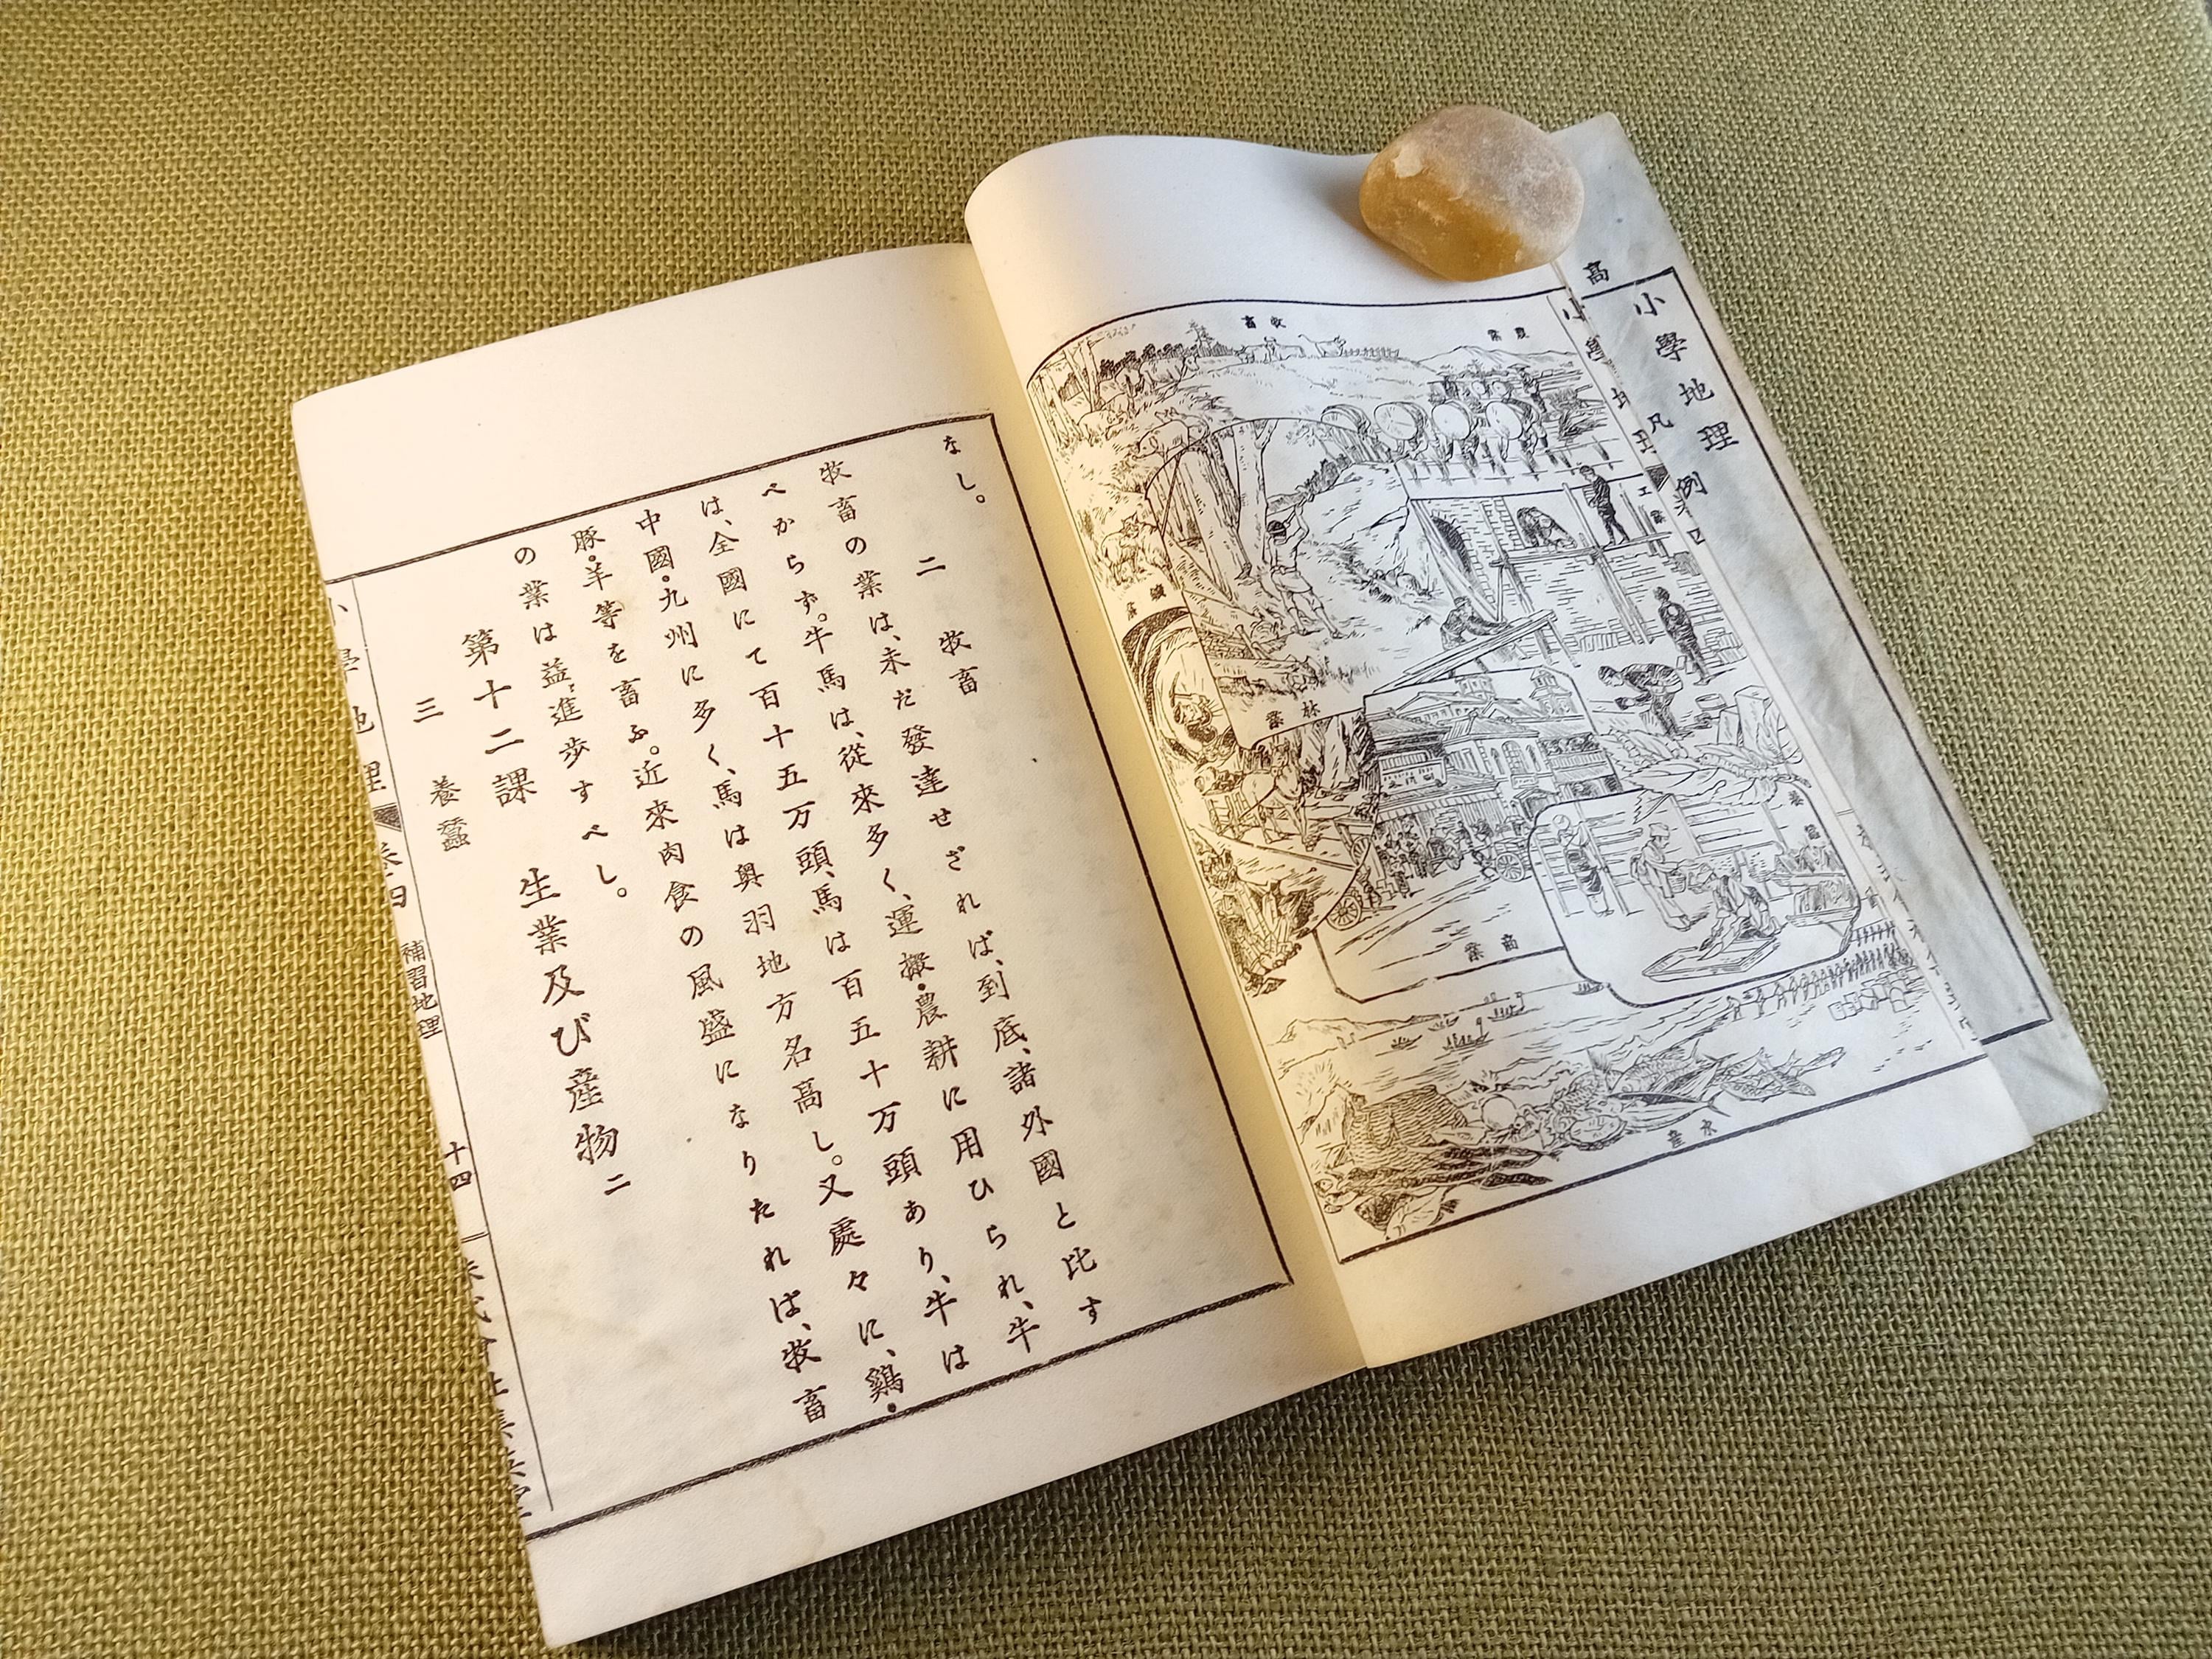 高
小學地理
凡例
小
農業
牧畜
工業
林業
商業
養蠶
水産
なし。
二　牧畜
牧畜の業は、未だ發達せざれば、到底、諸外國と比す
べからず。牛馬は、從來多く、運搬・農耕に用ひられ、牛
は、全國にて百十五万頭、馬は百五十万頭あり、牛は
中國・九州に多く、馬は奥羽地方名高し。又處々に、鷄・
豚・羊等を畜ふ。近來肉食の風盛になりたれば、牧畜
の業は益〻進歩すべし。
第十二課　生業及び産物二
三　養蠶
小學地理　卷四　補習地理　十四